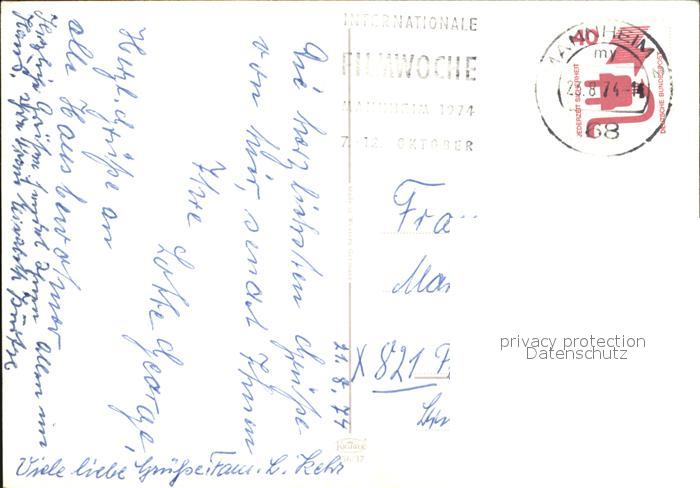 INTERNATIONALE
FILMWOCHE
MANNHEIM 1974
7.-12. OKTOBER
MANNHEIM
68
40
JEDERZEIT SICHERHEIT
DEUTSCHE BUNDESPOST
21.8.74
Die herzlichsten Grüße
von hier, sendet Ihnen
Ihre Lotte George,
Herzl. Grüße an
alle Hausbewohner
Herzliche Grüße sendet Ihnen allen im
Viele liebe Grüße: Fam. L. Kehr
Fra
Mar
X 821 F
privacy protection
Datenschutz